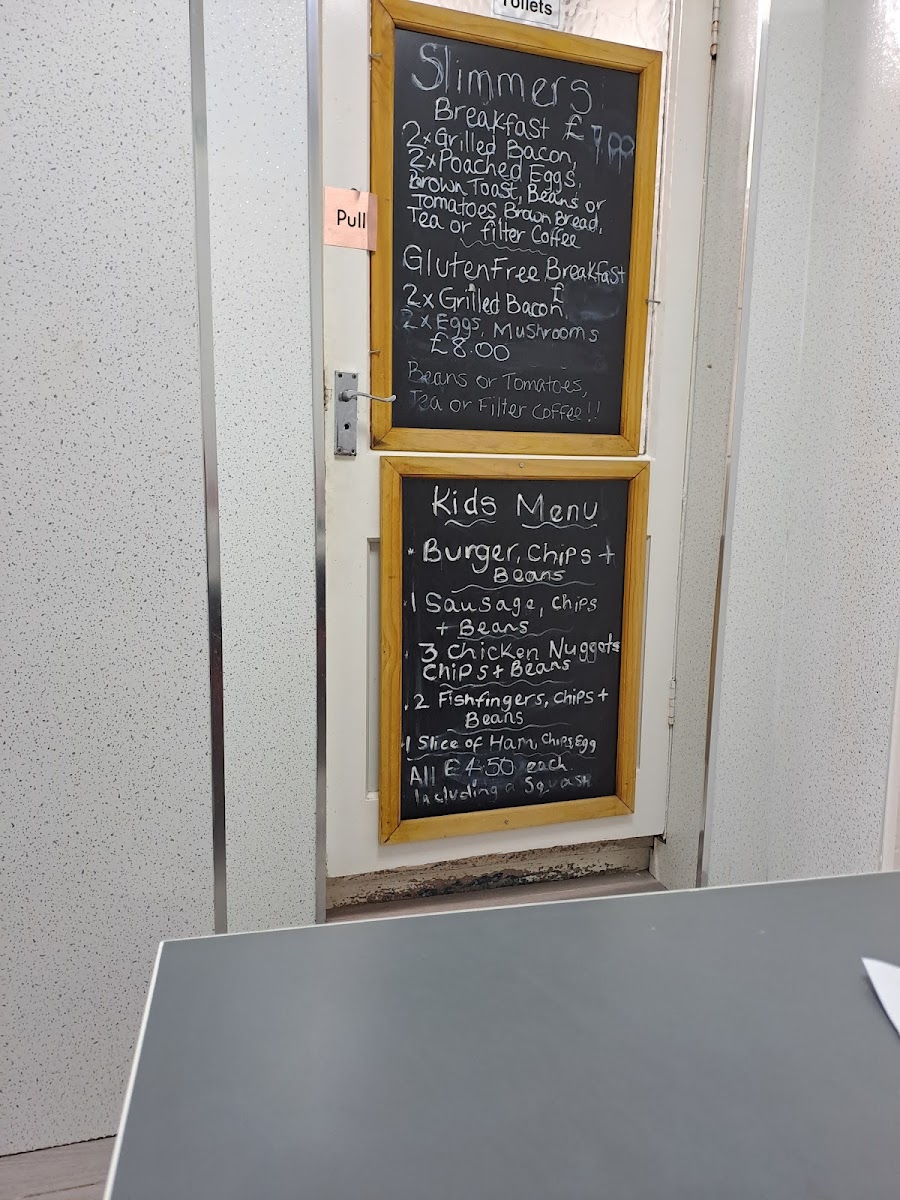 Toilets
Slimmers
Breakfast £7.00
2x Grilled Bacon,
2x Poached Eggs,
Brown Toast, Beans or
Tomatoes, Brown Bread,
Tea or filter Coffee
Pull
Gluten Free Breakfast
£
2x Grilled Bacon,
2x Eggs, Mushrooms
£8.00
Beans or Tomatoes,
Tea or Filter Coffee!!
Kids Menu
* Burger, Chips +
Beans
* 1 Sausage, Chips
+ Beans
* 3 Chicken Nuggets
Chips + Beans
* 2 Fishfingers, Chips +
Beans
* 1 Slice of Ham, Chips, Egg
All £4.50 each.
Including a Squash